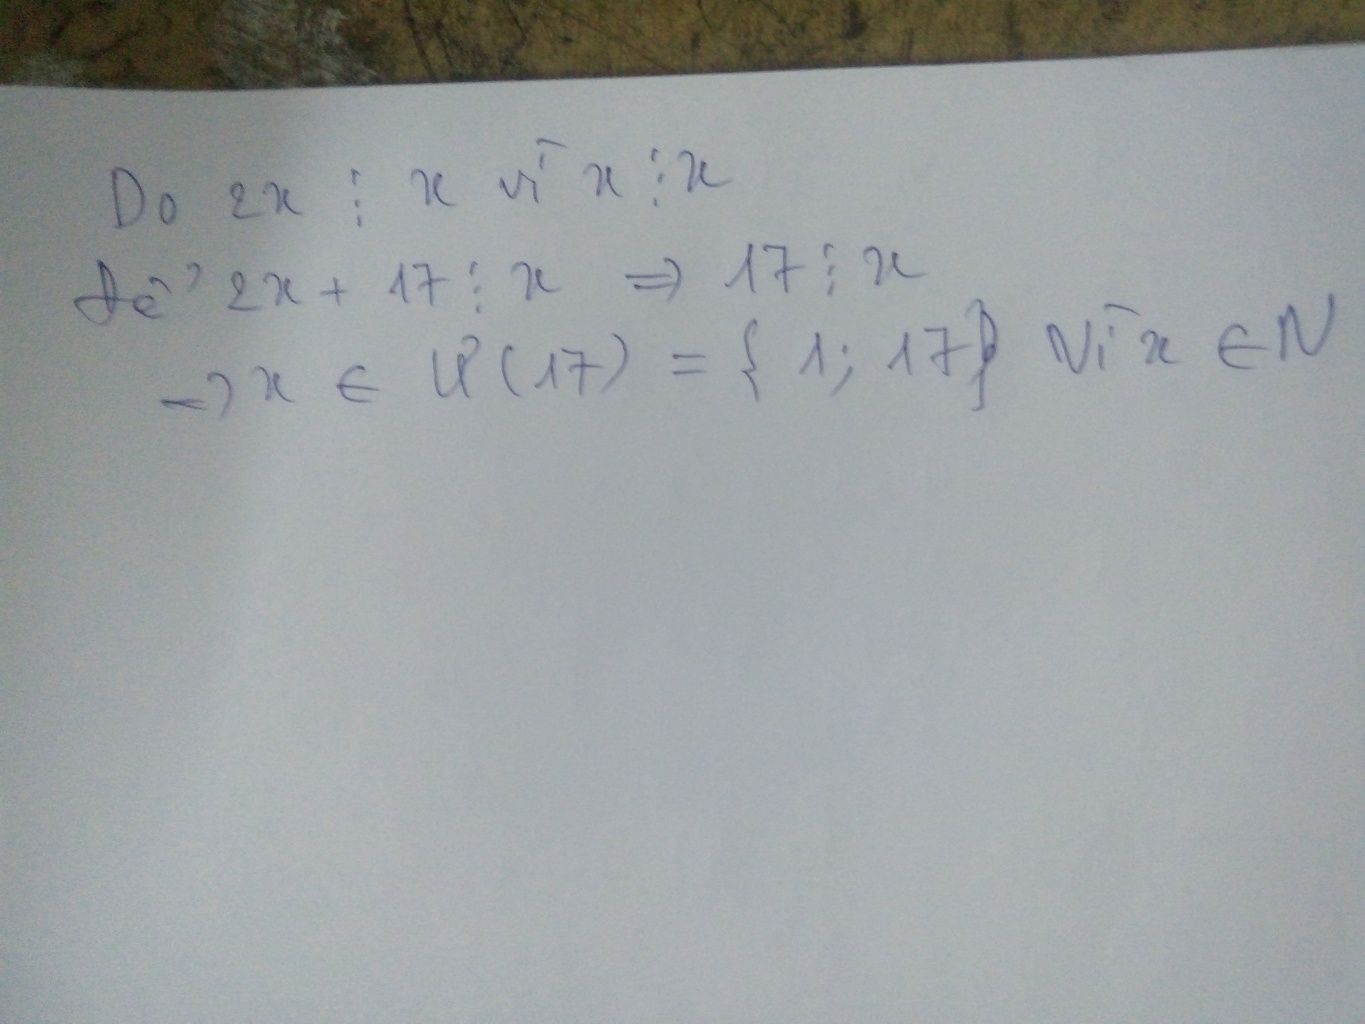 Do 2x ⋮ x vì x ⋮ x
để 2x + 17 ⋮ x ⇒ 17 ⋮ x
→ x ∈ Ư(17) = { 1; 17} Vì x ∈ N